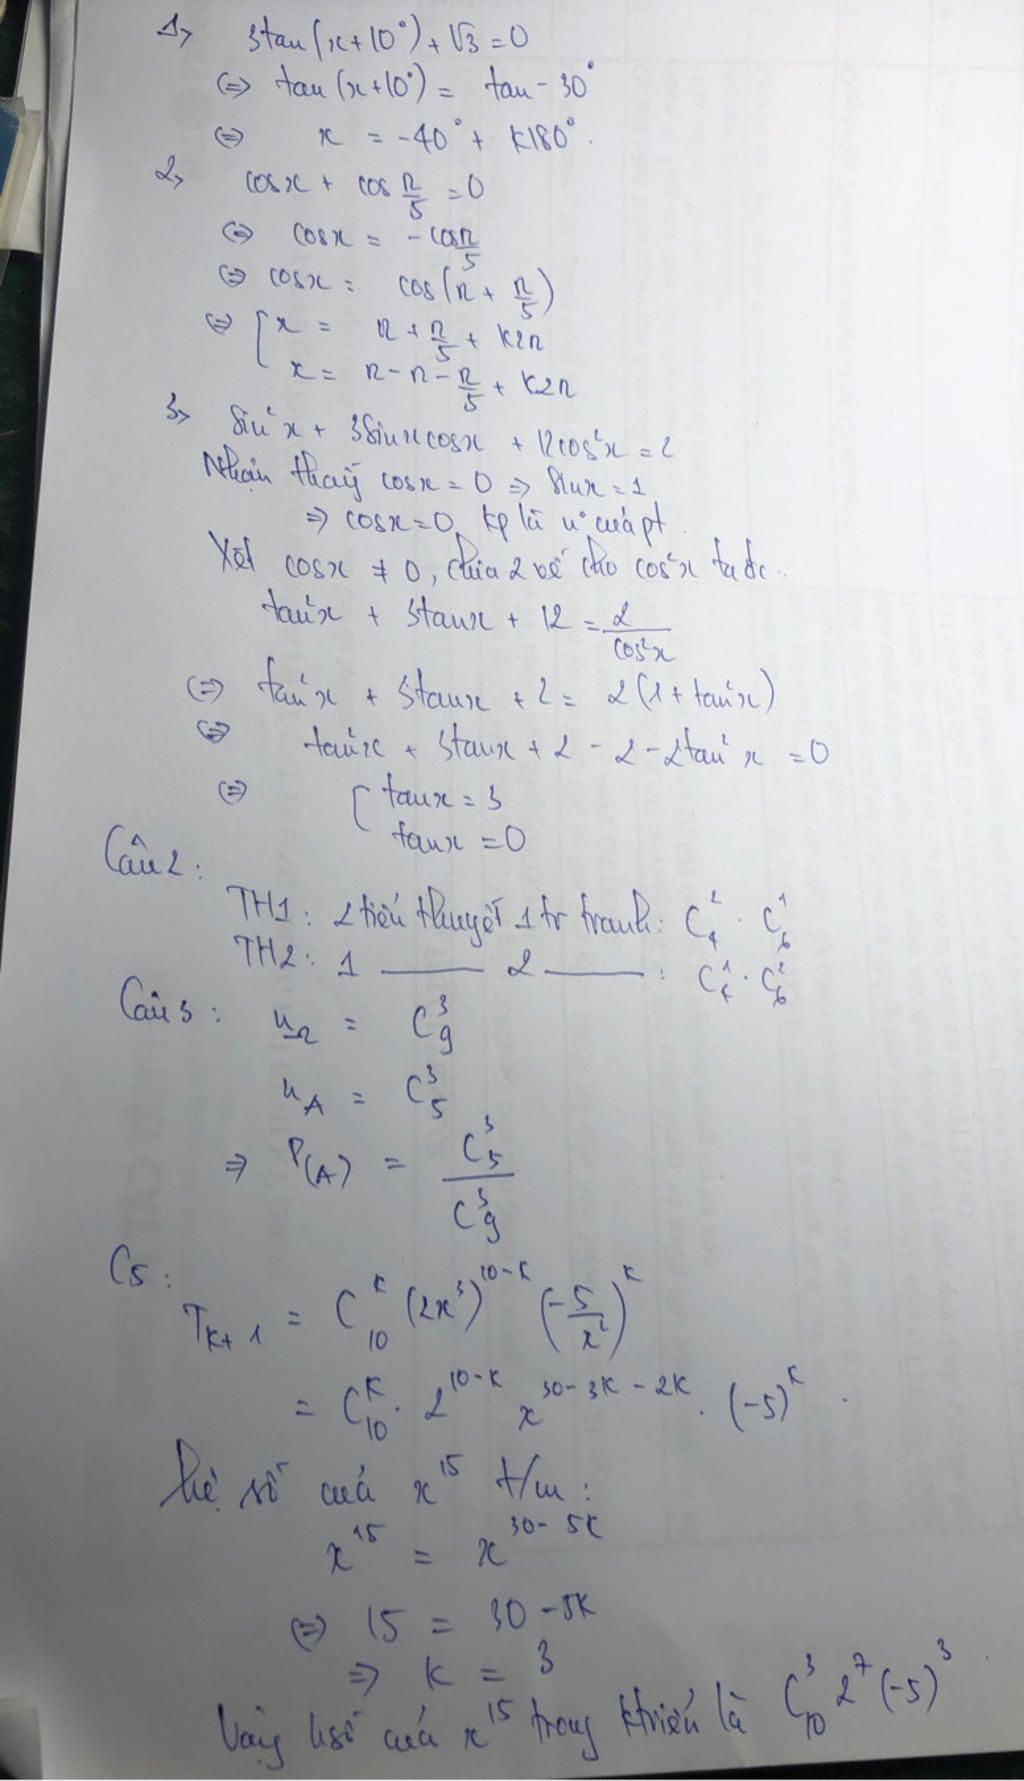 1, 3tan(x+10°)+√3=0
⇔ tan(x+10°) = tan-30°
⇔ x = -40° + k180°.
2, cosx + cos π/5 = 0
⇔ cosx = -cos π/5
⇔ cosx = cos(π + π/5)
⇔ [ x = π + π/5 + k2π
x = π - π - π/5 + k2π
3, sin²x + 3sinxcosx + 12cos²x = 2
Nhận thấy cosx = 0 ⇒ sinx = 1
⇒ cosx=0 kp là n° của pt
Xét cosx ≠ 0, chia 2 vế cho cos²x ta đc..
tan²x + 3tanx + 12 = 2/cos²x
⇔ tan²x + 3tanx + 2 = 2(1+tan²x)
⇔ tan²x + 3tanx + 2 - 2 - 2tan²x = 0
⇔ [ tanx = 3
tanx = 0
Câu 2:
TH1: 2 tiểu thuyết 1 tr tranh: C₄² . C₆¹
TH2: 1 —— 2 ——: C₄¹ . C₆²
Câu 3: nΩ = C₉³
nA = C₅³
⇒ P(A) = C₅³/C₉³
C5:
Tₖ₊₁ = C₁₀ᵏ (2x³)¹⁰⁻ᵏ (-5/x²)ᵏ
= C₁₀ᵏ . 2¹⁰⁻ᵏ x³⁰⁻³ᵏ⁻²ᵏ . (-5)ᵏ .
hệ số của x¹⁵ t/m:
x¹⁵ = x³⁰⁻⁵ᵏ
⇔ 15 = 30-5k
⇒ k = 3
Vậy hsố của x¹⁵ trong ktriển là C₁₀³ 2⁷ (-5)³.